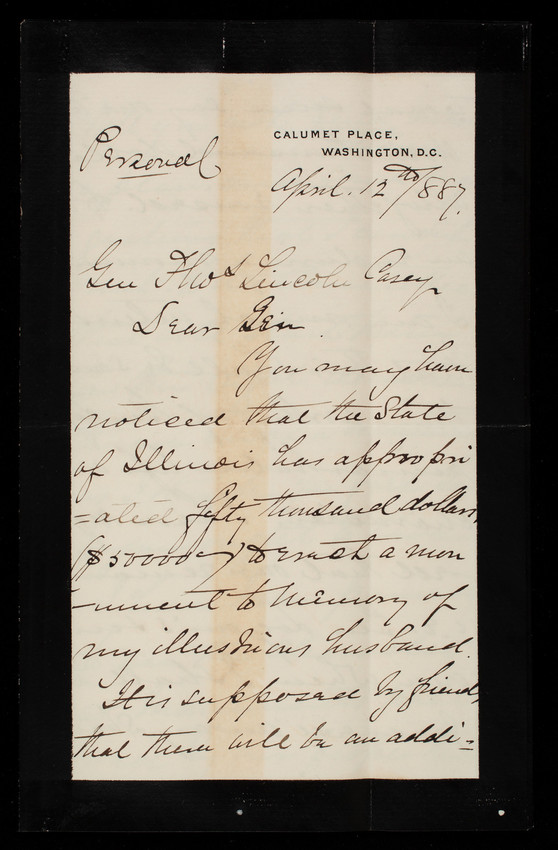 Personal
CALUMET PLACE,
WASHINGTON, D.C.
April. 12th/887.
Gen Thos Lincoln Casey
Dear Gen
You may have
noticed that the State
of Illinois has appropri
=ated fifty thousand dollars,
($50000—) to erect a mon
-ument to memory of
my illustrious husband.
It is supposed by friends,
that there will be an addi=